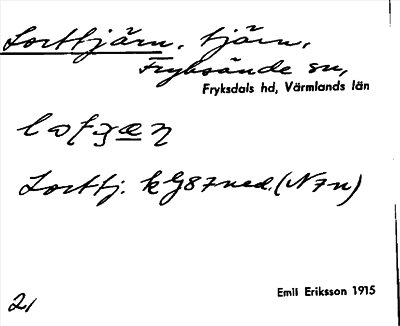 Lorttjärn, tjärn,
Fryksände sn,
Fryksdals hd, Värmlands län
Lorttj. kG87ned. (N7n)
Emil Eriksson 1915
21